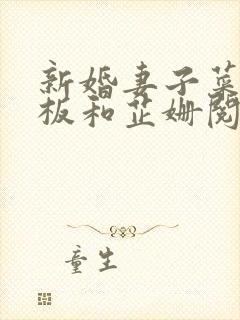 新婚妻子菜
板和芷姗阅
童生